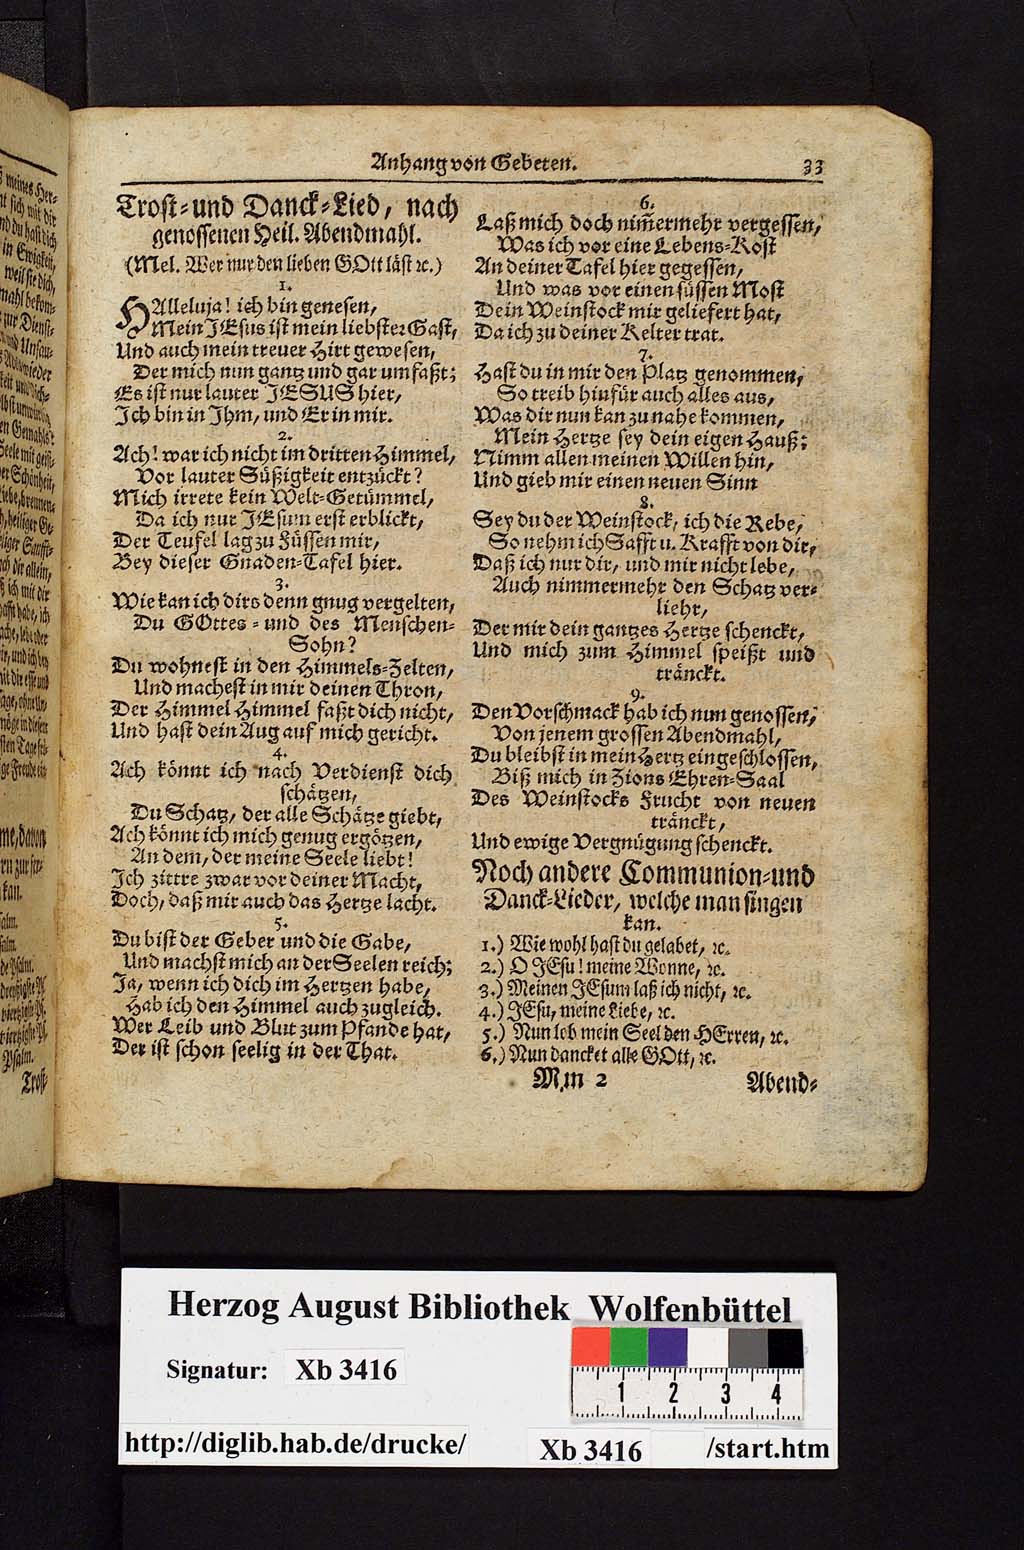 Anhang von Gebeten. 33
Trost-und Danck-Lied, nach
genossenen Heil. Abendmahl.
(Mel. Wer nur den lieben GOtt läst ꝛc.)
1.
HAlleluja! ich bin genesen,
Mein JEsus ist mein liebster Gast,
Und auch mein treuer Hirt gewesen,
Der mich nun gantz und gar umfaßt;
Es ist nur lauter JESUS hier,
Ich bin in Ihm, und Er in mir.
2.
Ach! war ich nicht im dritten Himmel,
Vor lauter Süßigkeit entzückt?
Mich irrete kein Welt-Getümmel,
Da ich nur JEsum erst erblickt,
Der Teufel lag zu Füssen mir,
Bey dieser Gnaden-Tafel hier.
3.
Wie kan ich dirs denn gnug vergelten,
Du GOttes - und des Menschen-
Sohn?
Du wohnest in den Himmels-Zelten,
Und machest in mir deinen Thron,
Der Himmel Himmel faßt dich nicht,
Und hast dein Aug auf mich gericht.
4.
Ach könnt ich nach Verdienst dich
schätzen,
Du Schatz, der alle Schätze giebt,
Ach könnt ich mich genug ergötzen,
An dem, der meine Seele liebt!
Ich zittre zwar vor deiner Macht,
Doch, daß mir auch das Hertze lacht.
5.
Du bist der Geber und die Gabe,
Und machst mich an der Seelen reich;
Ja, wenn ich dich im Hertzen habe,
Hab ich den Himmel auch zugleich.
Wer Leib und Blut zum Pfande hat,
Der ist schon seelig in der That.
6.
Laß mich doch nim̃ermehr vergessen,
Was ich vor eine Lebens-Kost
An deiner Tafel hier gegessen,
Und was vor einen süssen Most
Dein Weinstock mir geliefert hat,
Da ich zu deiner Kelter trat.
7.
Hast du in mir den Platz genommen,
So treib hinfür auch alles aus,
Was dir nun kan zu nahe kommen,
Mein Hertze sey dein eigen Hauß;
Nimm allen meinen Willen hin,
Und gieb mir einen neuen Sinn
8.
Sey du der Weinstock, ich die Rebe,
So nehm ich Safft u. Krafft von dir,
Daß ich nur dir, und mir nicht lebe,
Auch nimmermehr den Schatz ver-
liehr,
Der mir dein gantzes Hertze schenckt,
Und mich zum Himmel speißt und
tränckt.
9.
Den Vorschmack hab ich nun genossen,
Von jenem grossen Abendmahl,
Du bleibst in mein Hertz eingeschlossen,
Biß mich in Zions Ehren-Saal
Des Weinstocks Frucht von neuen
tränckt,
Und ewige Vergnügung schenckt.
Noch andere Communion-und
Danck-Lieder, welche man singen
kan.
1.) Wie wohl hast du gelabet, ꝛc.
2.) O JEsu! meine Wonne, ꝛc.
3.) Meinen JEsum laß ich nicht, ꝛc.
4.) JEsu, meine Liebe, ꝛc.
5.) Nun lob mein Seel den HErren, ꝛc.
6.) Nun dancket alle GOtt, ꝛc.
M m 2 Abend-
Herzog August Bibliothek Wolfenbüttel
Signatur: Xb 3416
1 2 3 4
http://diglib.hab.de/drucke/ Xb 3416 /start.htm